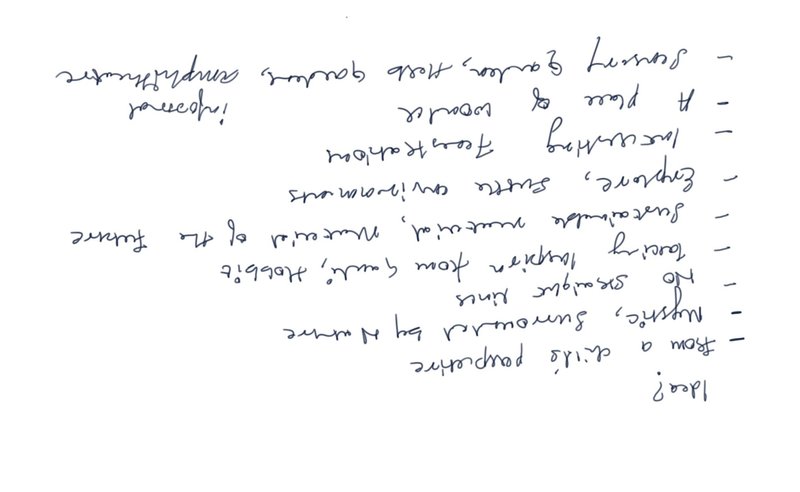 Idea?
- From a child's perspective
- Mystic, Surrounded by Nature
- No straight lines
- Taking Inspirn from Gaudi, Hobbit
- Sustainable material, Material of the future
- Explore, subtle environments
- Interesting Fenestrations
- A place of wonder informal
- Sensory Garden, Herb garden, amphitheatre